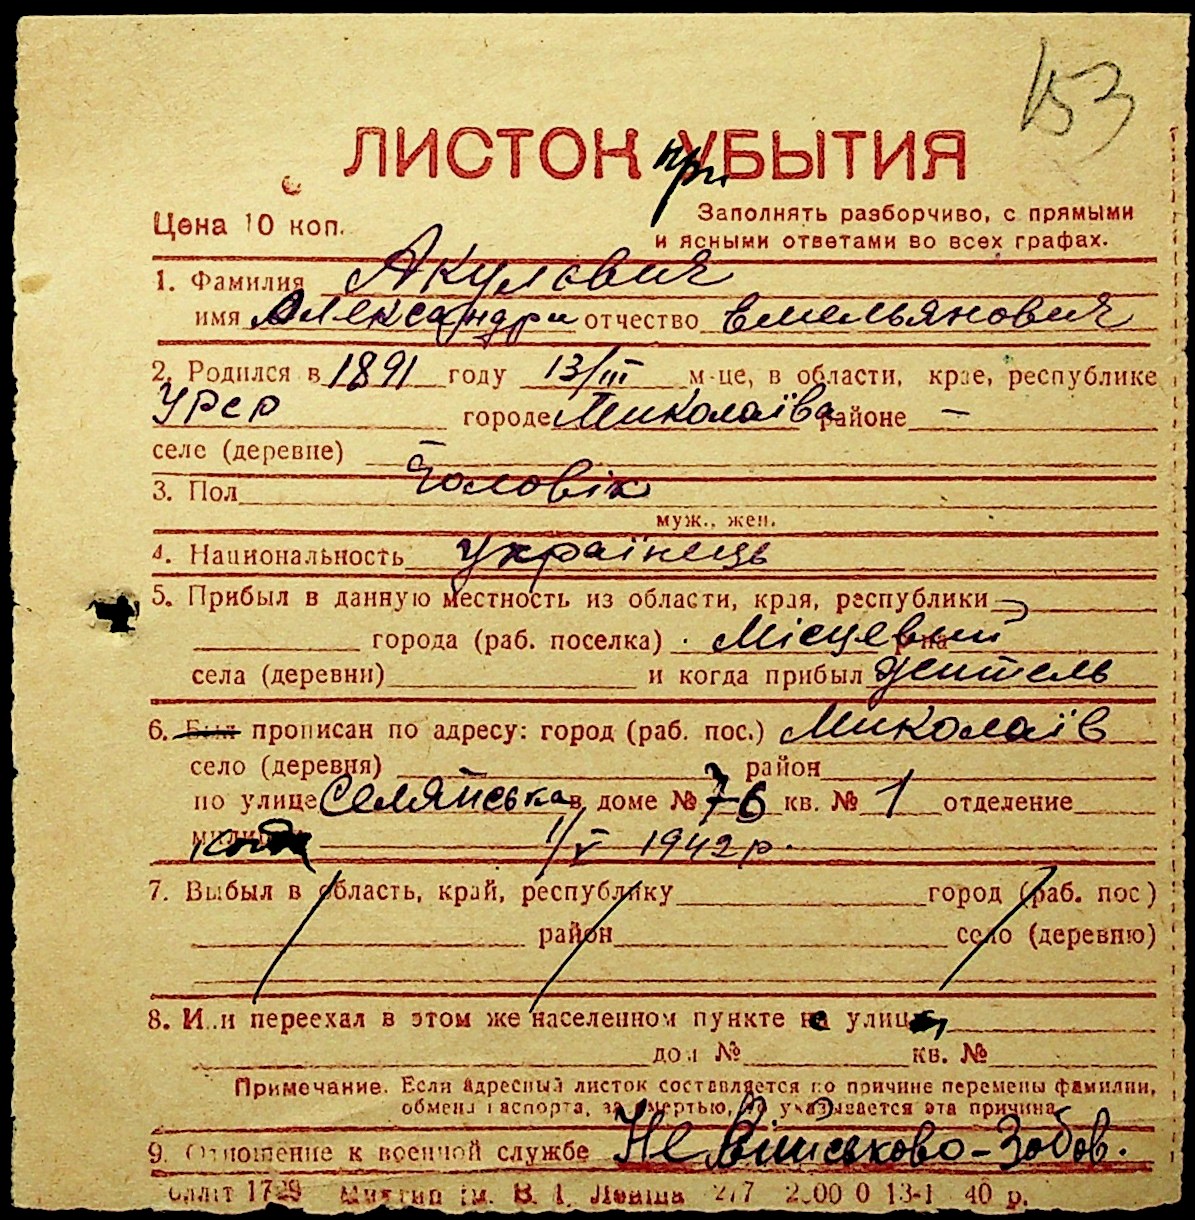 153
ЛИСТОК при УБЫТИЯ
Цена 10 коп. Заполнять разборчиво, с прямыми
и ясными ответами во всех графах.
1. Фамилия Акулович
имя Александри отчество Емельянович
2. Родился в 1891 году 13/III м-це, в области, крае, республике
УРСР городе Миколаїва районе —
селе (деревне) —
3. Пол Чоловік
муж., жен.
4. Национальность українець
5. Прибыл в данную местность из области, края, республики
города (раб. поселка) Місцевый р-на
села (деревни) и когда прибыл житель
6. Был прописан по адресу: город (раб. пос.) Миколаїв
село (деревня) район
по улице Селянська в доме № 76 кв. № 1 отделение
милиции 1/V 1942 р.
7. Выбыл в область, край, республику город (раб. пос)
район село (деревню)
8. Или переехал в этом же населенном пункте на улицу
дом № кв. №
Примечание. Если адресный листок составляется по причине перемены фамилии,
обмена паспорта, за смертью, то указывается эта причина
9. Отношение к военной службе Не Військово-Зобов.
Облліт 1729 им. В. І. Леніна 277 13-1 40 р.